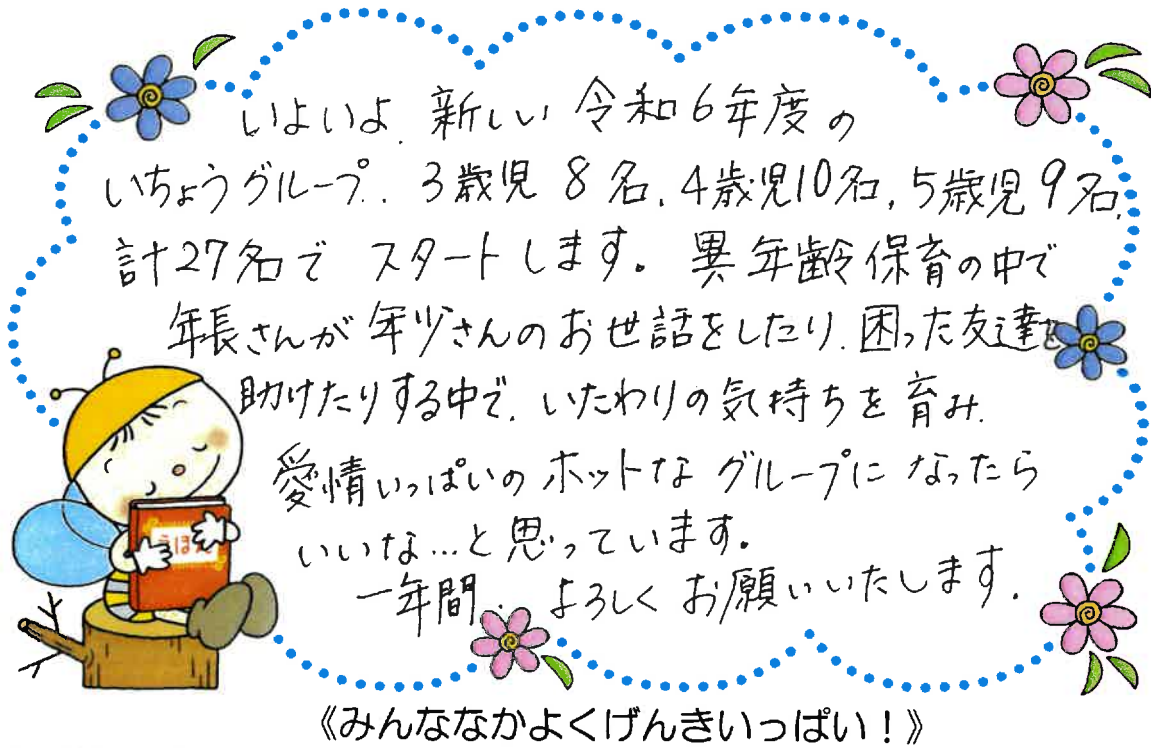 いよいよ、新しい令和6年度の
いちょうグループ、、3歳児8名、4歳児10名、5歳児9名、
計27名でスタートします。異年齢保育の中で
年長さんが年少さんのお世話をしたり、困った友達を
助けたりする中で、いたわりの気持ちを育み、
愛情いっぱいのホットなグループになったら
いいな…と思っています。
一年間、よろしくお願いいたします。
えほん
《みんななかよくげんきいっぱい！》